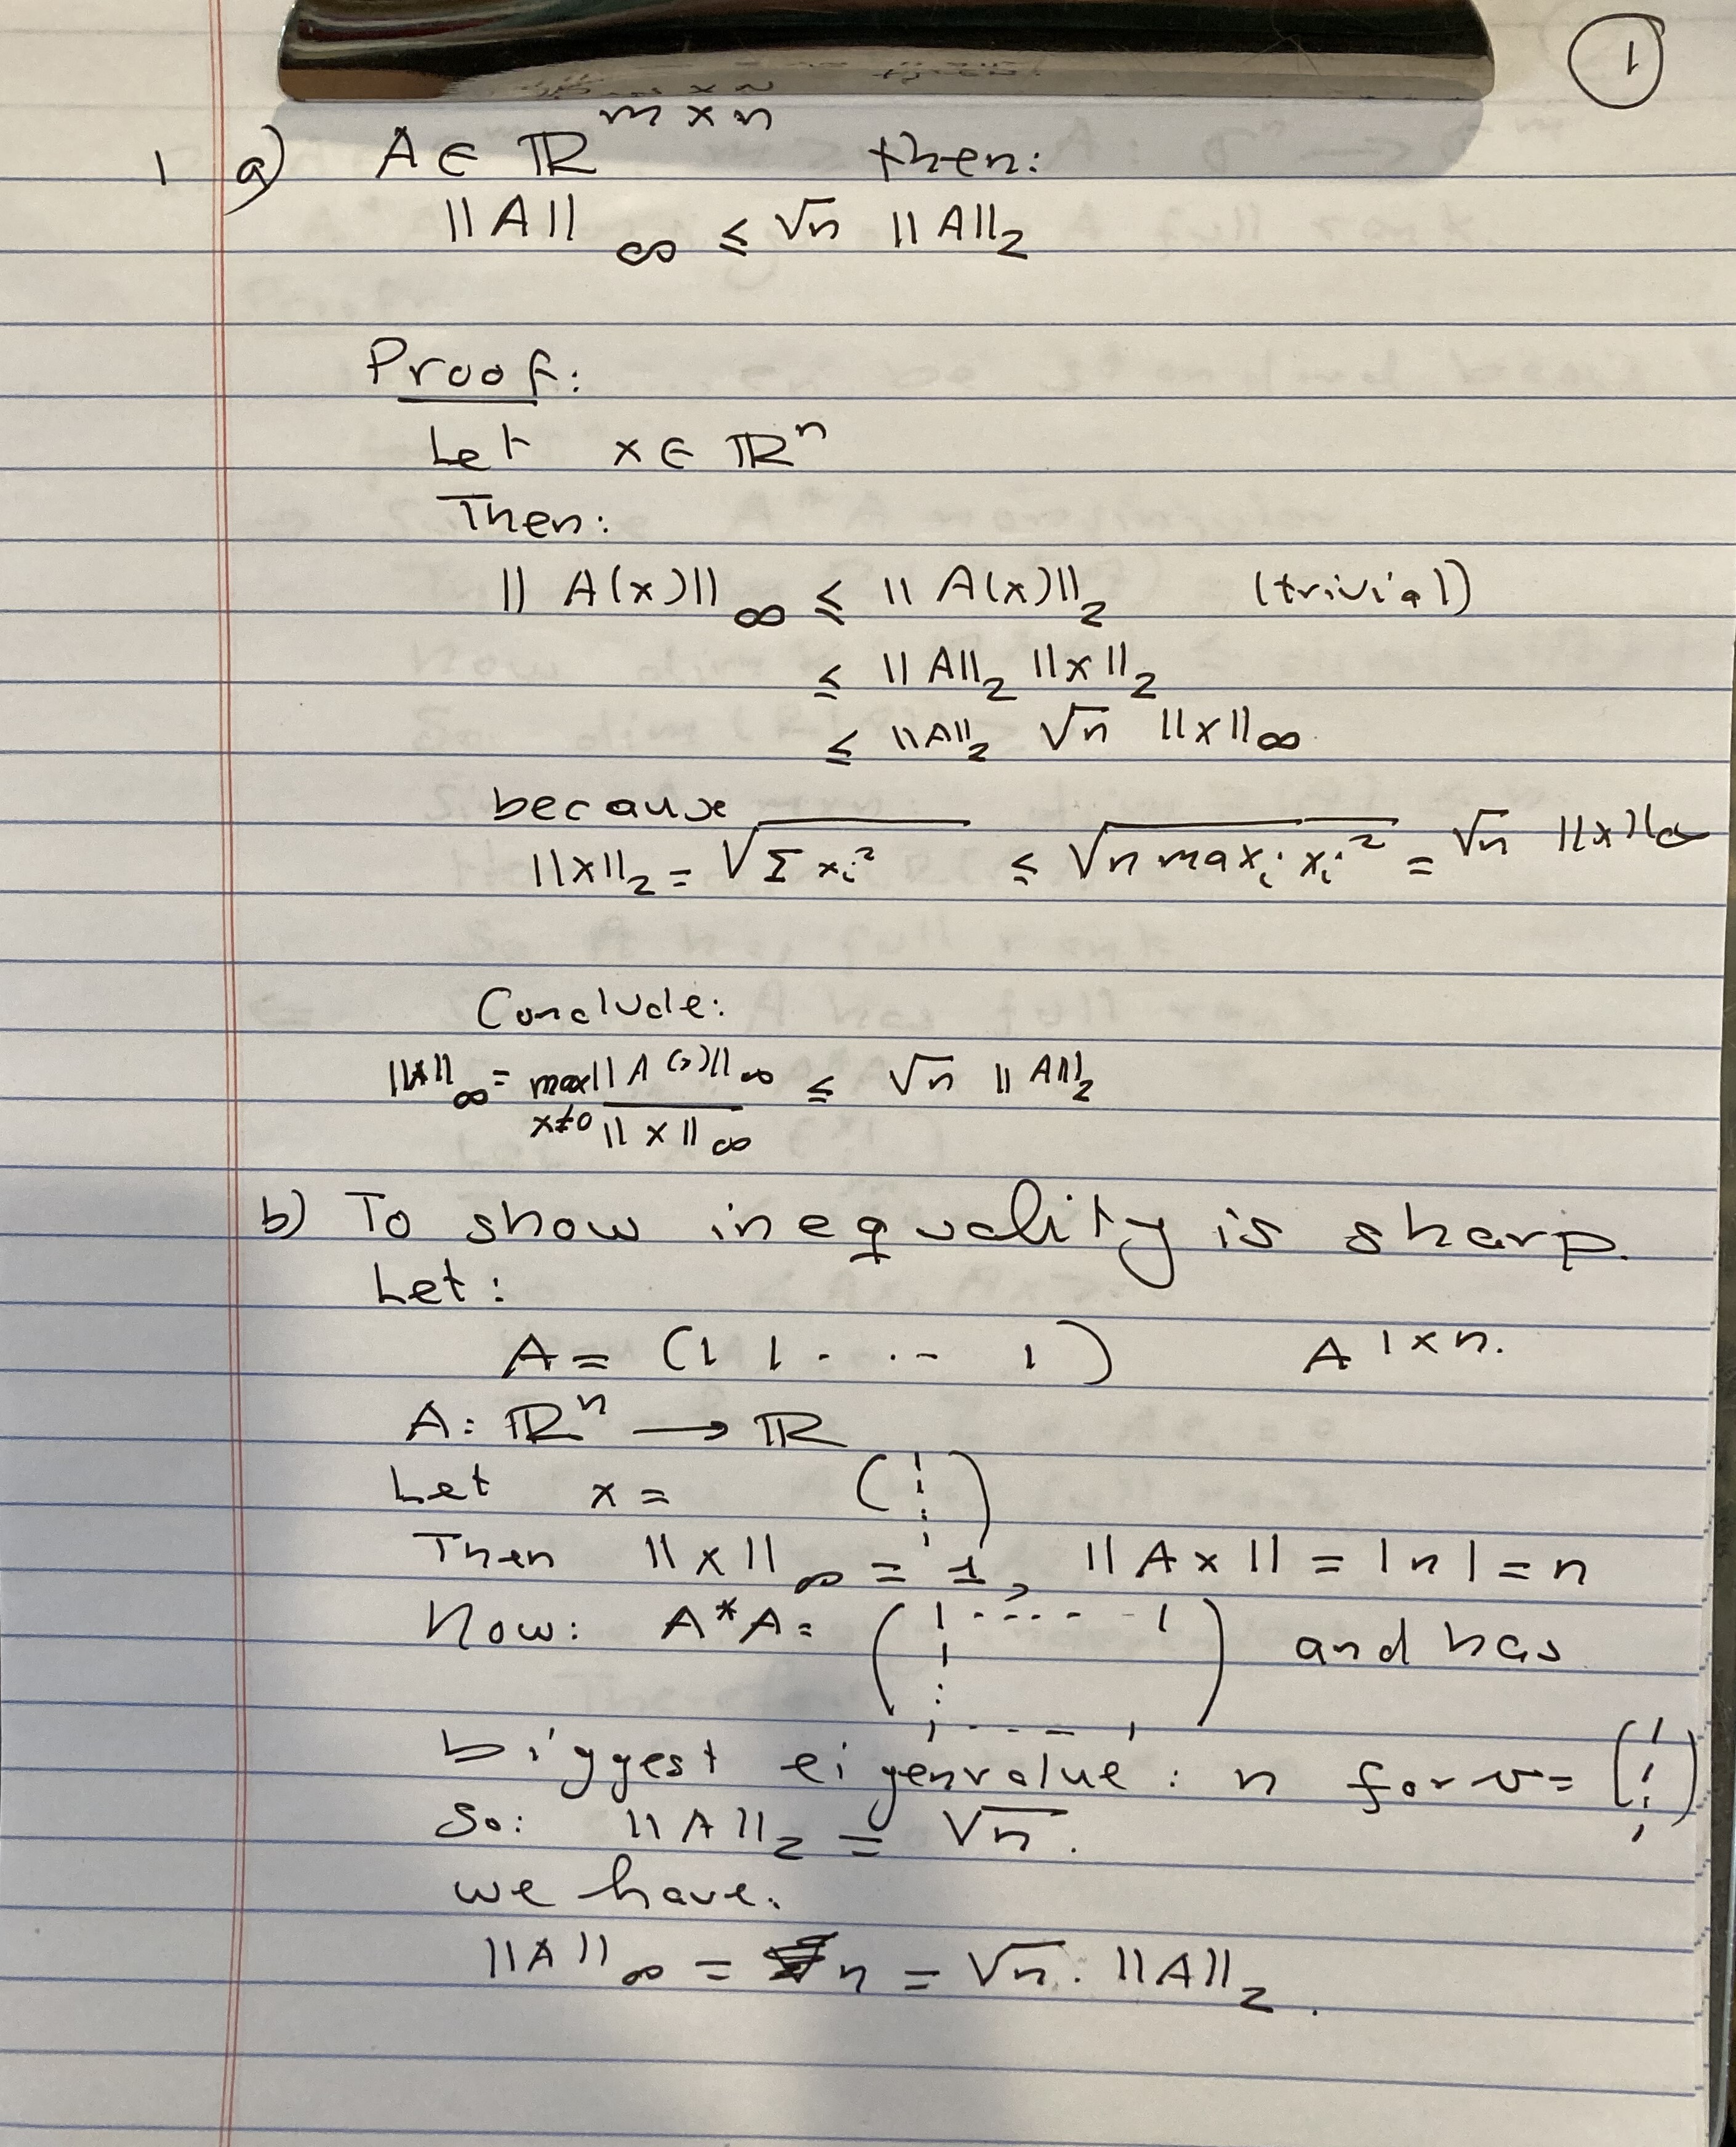 1
1 a) A ∈ ℝ^{m×n} then:
||A||_∞ ≤ √n ||A||_2
Proof:
Let x ∈ ℝ^n
Then:
||A(x)||_∞ ≤ ||A(x)||_2 (trivial)
≤ ||A||_2 ||x||_2
≤ ||A||_2 √n ||x||_∞
because
||x||_2 = √(Σ x_i^2) ≤ √(n max_i x_i^2) = √n ||x||_∞
Conclude:
||A||_∞ = max_{x≠0} ||A(x)||_∞ / ||x||_∞ ≤ √n ||A||_2
b) To show inequality is sharp.
Let:
A = (1 1 . . . - 1) A 1×n.
A: ℝ^n → ℝ
Let x = (1 ⋮ 1)
Then ||x||_∞ = 1, ||Ax|| = |n| = n
Now: A*A = (1 ⋯ 1 ⋮ 1 ⋯ 1) and has
biggest eigenvalue: n for v = (1 ⋮ 1)
So: ||A||_2 = √n.
we have.
||A||_∞ = n = √n . ||A||_2 .